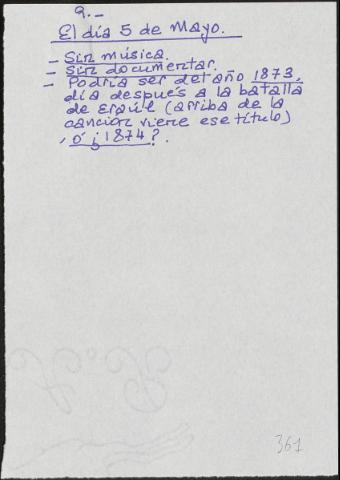 9.-
El día 5 de Mayo.
- Sin música.
- Sin documentar.
- Podría ser del año 1873,
día después a la batalla
de Eraúl (arriba de la
canción viene ese título)
, ó ¿1874?.
361